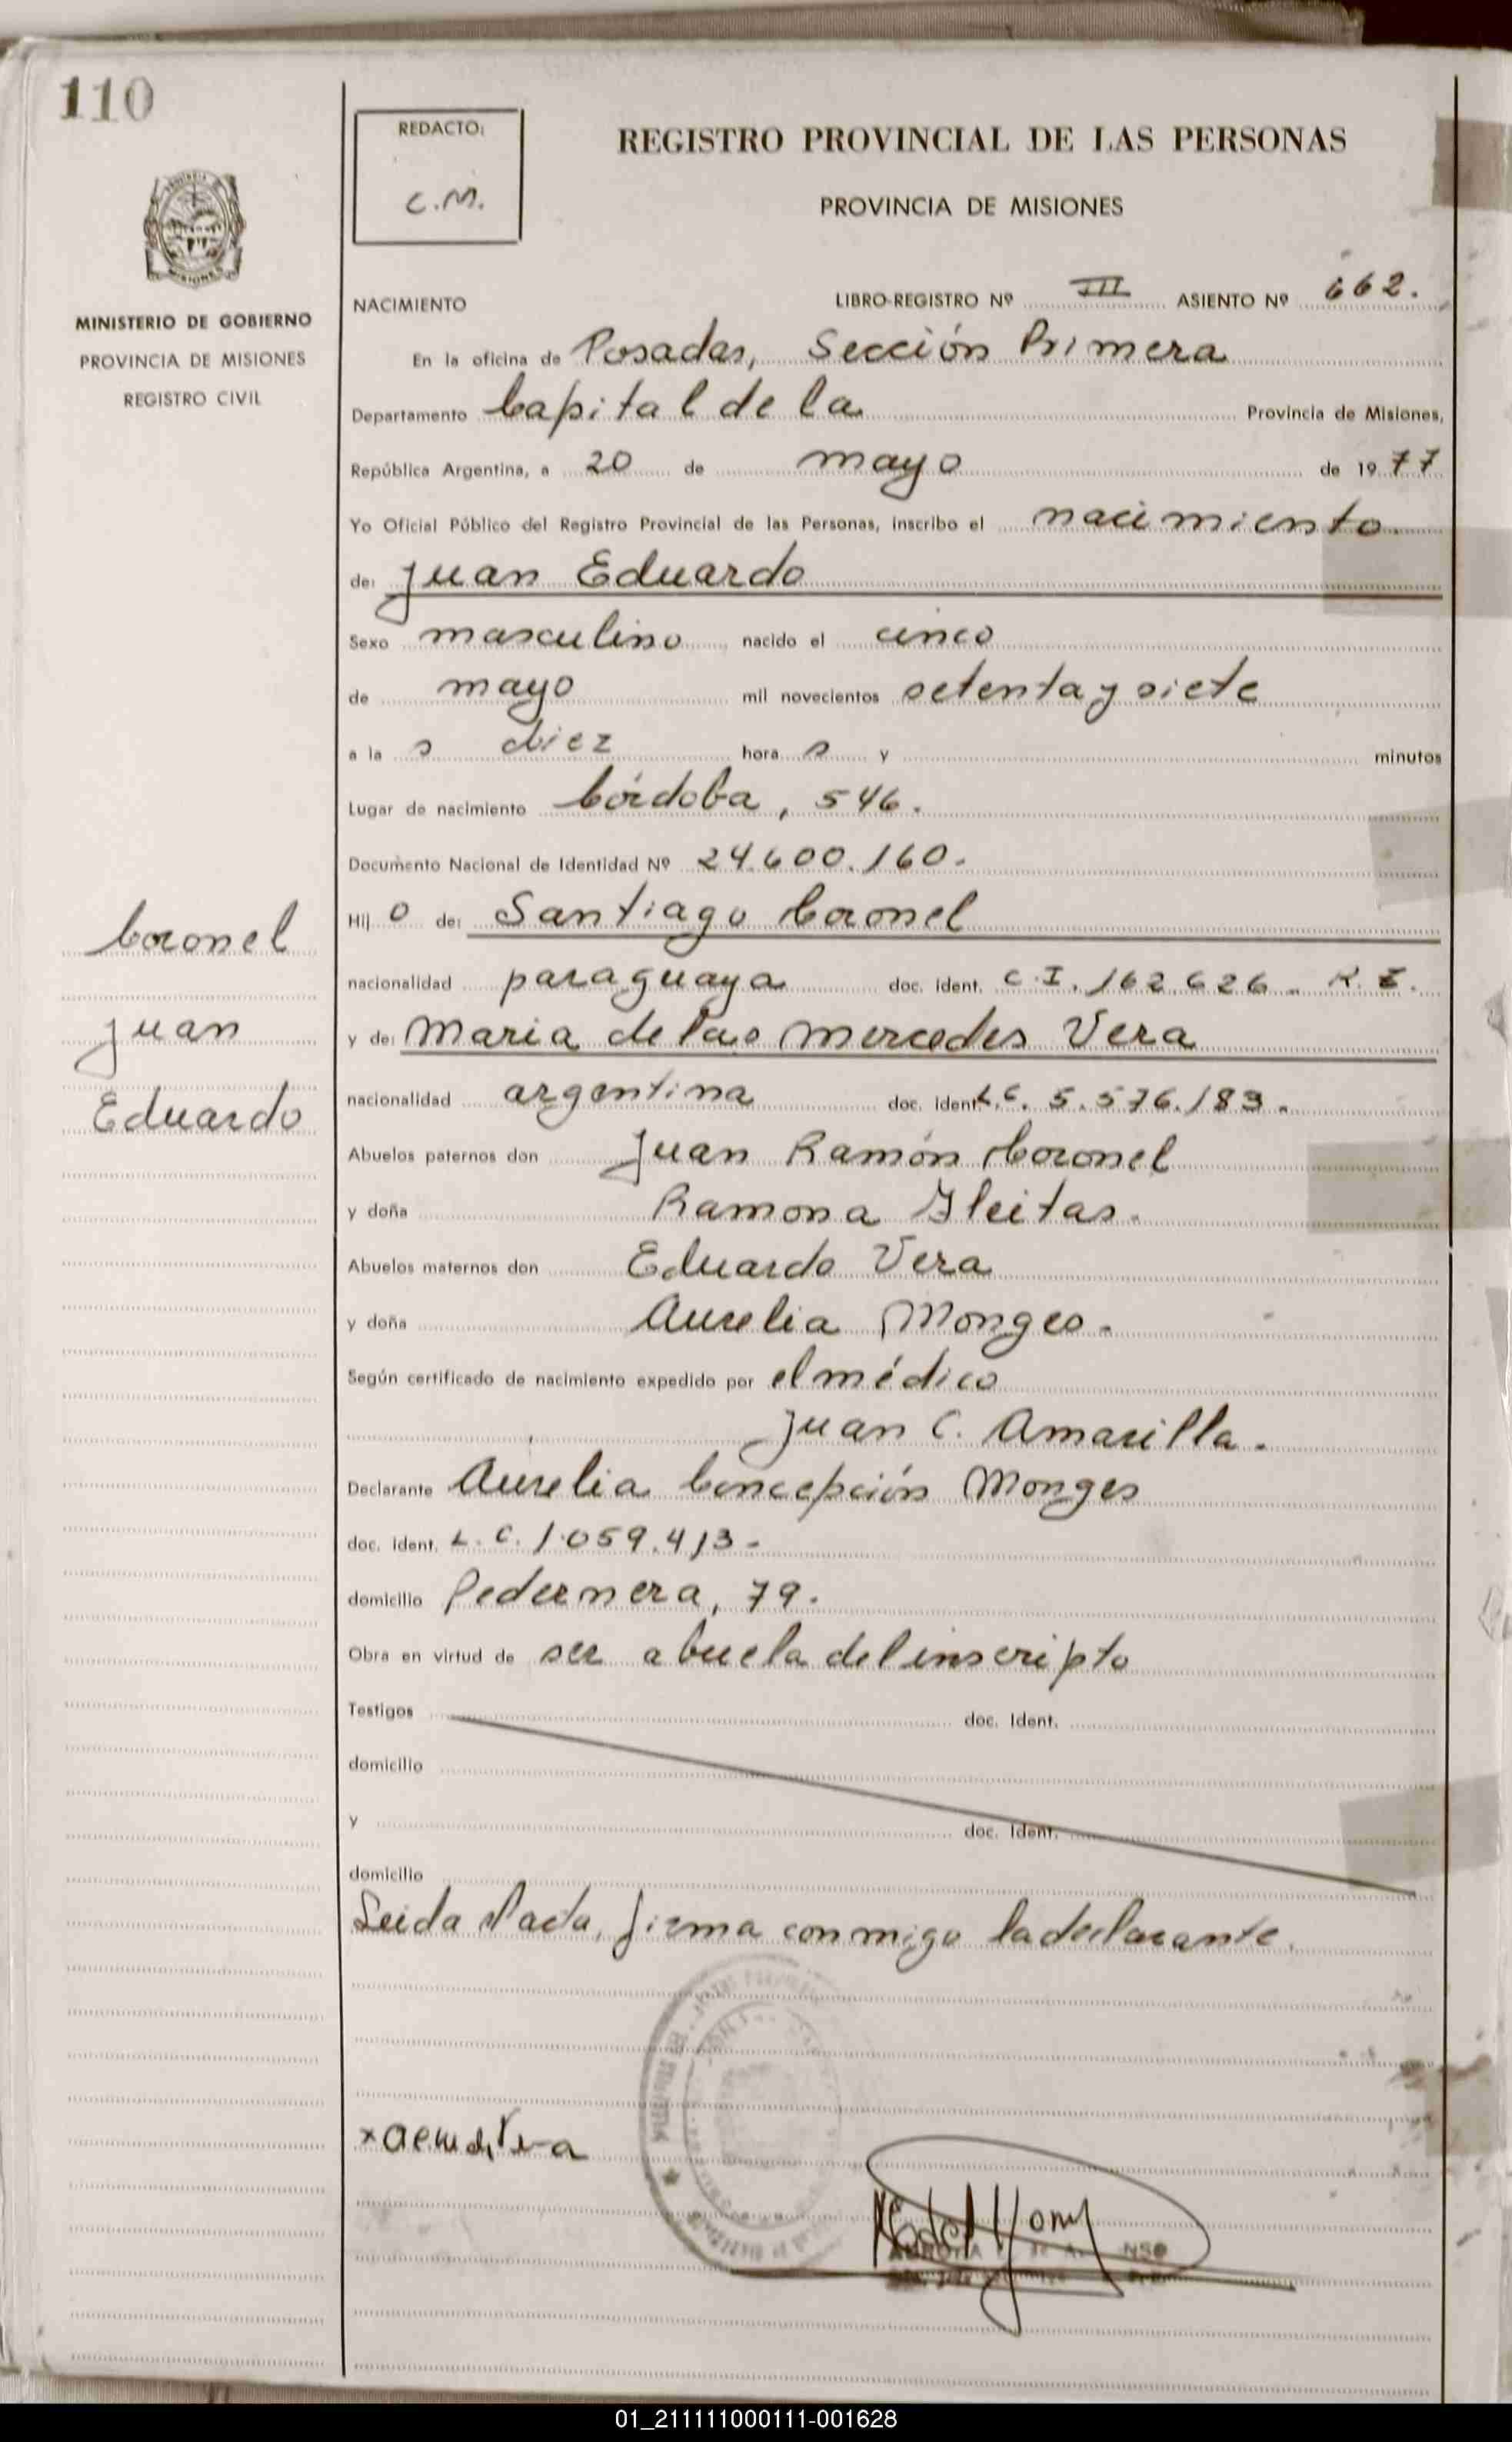 110
REDACTO:
C.M.
REGISTRO PROVINCIAL DE LAS PERSONAS
PROVINCIA DE MISIONES
MISIONES
MINISTERIO DE GOBIERNO
PROVINCIA DE MISIONES
REGISTRO CIVIL
NACIMIENTO LIBRO-REGISTRO Nº III ASIENTO Nº 662.
En la oficina de Posadas, Sección Primera
Departamento Capital de la Provincia de Misiones,
República Argentina, a 20 de mayo de 1977
Yo Oficial Público del Registro Provincial de las Personas, inscribo el nacimiento
de: Juan Eduardo
Sexo masculino nacido el cinco
de mayo mil novecientos setenta y siete
a la s diez hora s y minutos
Lugar de nacimiento Córdoba, 546.
Documento Nacional de Identidad Nº 24.600.160.
Hij o de: Santiago Coronel
Coronel
nacionalidad paraguaya doc. ident. C.I. 162626
Juan
y de: Maria de las Mercedes Vera
nacionalidad argentina doc. ident. L.C. 5.576.183.
Eduardo
Abuelos paternos don Juan Ramón Coronel
y doña Ramona Gleitas.
Abuelos maternos don Eduardo Vera
y doña Aurelia Monges.
Según certificado de nacimiento expedido por el médico
Juan C. Amarilla.
Declarante Aurelia Concepción Monges
doc. ident. L.C. 1.059.413.
domicilio Pedernera, 79.
Obra en virtud de ser abuela del inscripto
Testigos doc. Ident.
domicilio
y doc. Ident.
domicilio
Leida el acta, firma conmigo la declarante.
01_211111000111-001628